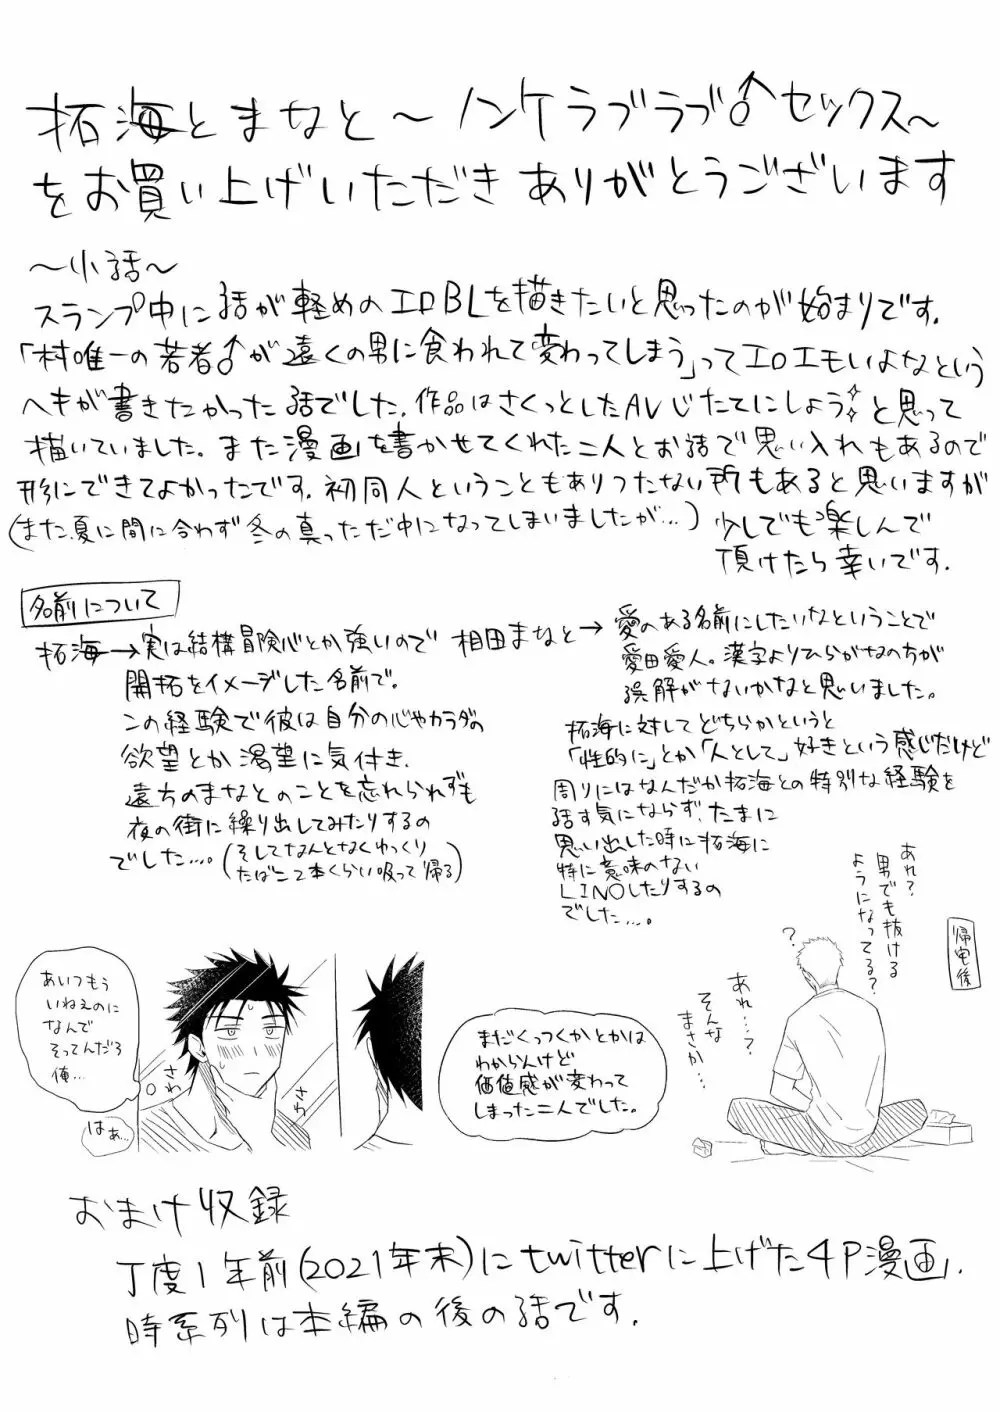 拓海とまなと～ノンケラブラブ♂セックス～
をお買い上げいただきありがとうございます
～小話～
スランプ中に話が軽めのエロBLを描きたいと思ったのが始まりです.
「村唯一の若者♂が遠くの男に食われて変わってしまう」ってエロエモいよなという
ヘキが書きたかった話でした.作品はさくっとしたAVじたてにしよう✧と思って
描いていました。また漫画を書かせてくれた二人とお話で思い入れもあるので
形にできてよかったです.初同人ということもありつたない所もあると思いますが
(また夏に間に合わず冬の真っただ中になってしまいましたが…) 少しでも楽しんで
頂けたら幸いです.
名前について
拓海→実は結構冒険心とか強いので
開拓をイメージした名前で。
この経験で彼は自分の心やカラダの
欲望とか渇望に気付き、
遠方のまなとのことを忘れられずも
夜の街に繰り出してみたりするの
でした…。(そしてなんとなくわっくり
たばこ2本くらい吸って帰る)
相田まなと→愛のある名前にしたいなということで
愛田愛人。漢字よりひらがなの方が
誤解がないかなと思いました。
拓海に対してどちらかというと
「性的に」とか「人として」好きという感じだけど
周りにはなんだか拓海との特別な経験を
話す気にならず、たまに
思い出した時に拓海に
特に意味のない
LINOしたりするの
でした…。
帰宅後
あれ?
男でも抜ける
ようになってる?
?
あれ…?
そんな
まさか…
あいつもう
いねぇのに
なんで
そってんだろ
俺…
はぁ…
さわ
さわ
まだくっつくかとかは
わからんけど
価値感が変わって
しまった二人でした。
おまけ収録
丁度1年前(2021年末)にtwitterに上げた4P漫画.
時系列は本編の後の話です.